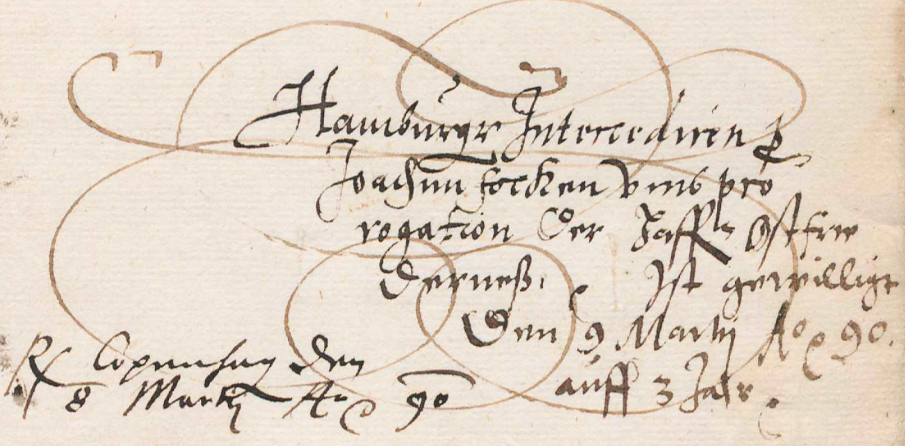 Hamburgr Intercediren p
Joachim focken vmb pro
rogation der Haffn Ostfrie
derneß. Ist gewilligt
Den 9 Martij Ao 90.
auff 3 Jahr
Rx Copenhagn den
8 Martij Ao 90